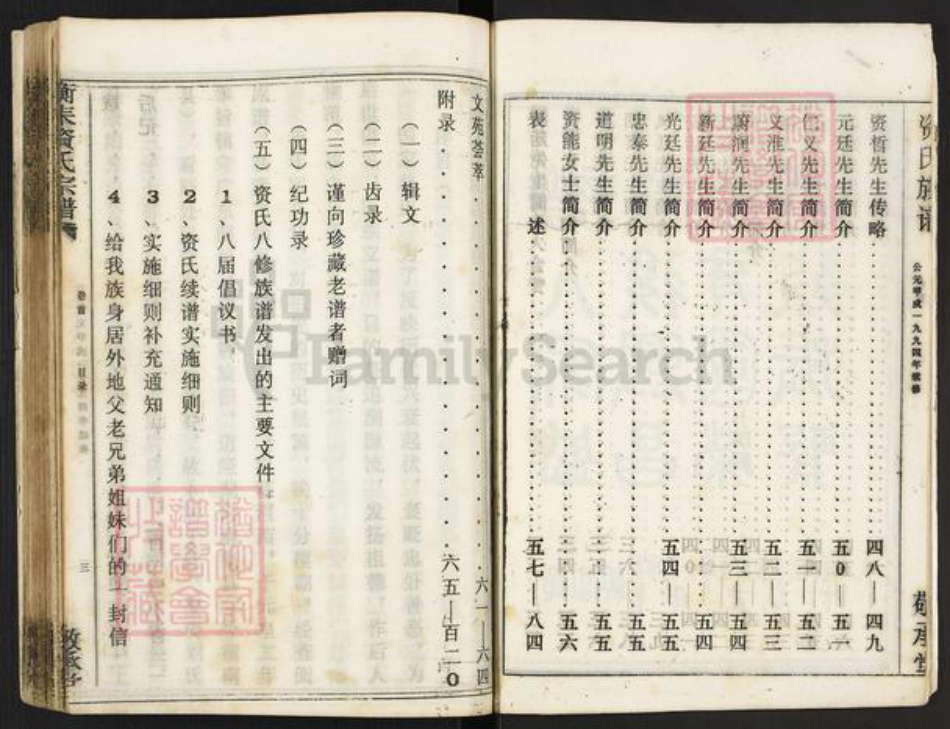 资氏族谱
公元甲戌一九九四年续修
敬承堂
资哲先生传略 四八——四九
元廷先生简介 五0——五一
仁义先生简介 五一——五二
义淮先生简介 五二——五三
蔚润先生简介 五三——五四
新廷先生简介 五四
光廷先生简介 五四——五五
忠泰先生简介 五五
道明先生简介 五五
资能女士简介 五六
表 述 五七——八四
文苑荟萃 六一——六四
附录 六五—百二0
(一)辑文
(二)齿录
(三)谨向珍藏老谱者赠词
(四)纪功录
(五)资氏八修族谱发出的主要文件
1、八届倡议书
2、资氏续谱实施细则
3、实施细则补充通知
4、给我族身居外地父老兄弟姐妹们的一封信
衡耒资氏宗谱
卷首
目录
三
敬承堂
FamilySearch